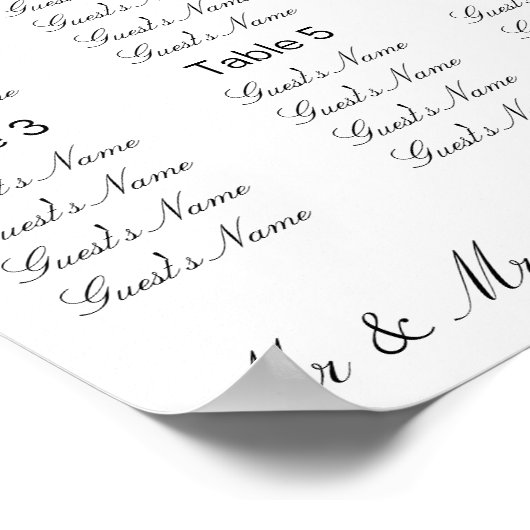 Guest's Name
Guest's Name
Guest's Name
Guest's Name
Table 5
Guest's Name
Guest's Name
Guest's Name
Guest's Name
3
Guest's Name
Guest's Name
Guest's Name
Guest's Name
Mr & Mr